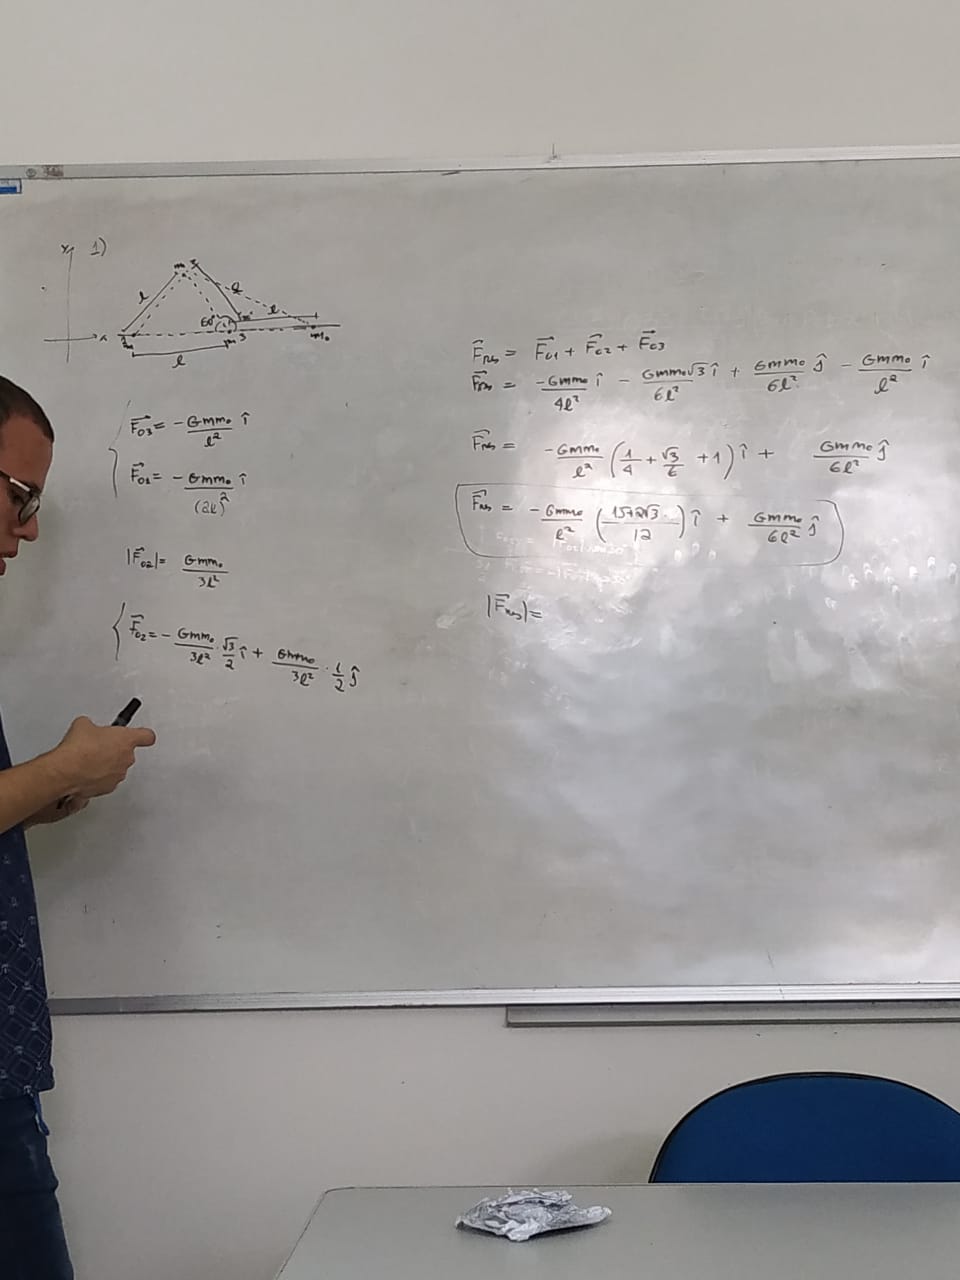 1)
y
x
m
l
l
l
60°
m 3
m₀
l
F⃗₀₃ = - Gmm₀/l² î
F⃗₀₁ = - Gmm₀/(2l)² î
|F⃗₀₂| = Gmm₀/3l²
F⃗₀₂ = - Gmm₀/3l² · √3/2 î + Gmm₀/3l² · 1/2 ĵ
F⃗res = F⃗₀₁ + F⃗₀₂ + F⃗₀₃
F⃗res = -Gmm₀/4l² î - Gmm₀√3/6l² î + Gmm₀/6l² ĵ - Gmm₀/l² î
F⃗res = -Gmm₀/l² (1/4 + √3/6 + 1) î + Gmm₀/6l² ĵ
F⃗res = -Gmm₀/l² (15+2√3/12) î + Gmm₀/6l² ĵ
|F⃗res| =